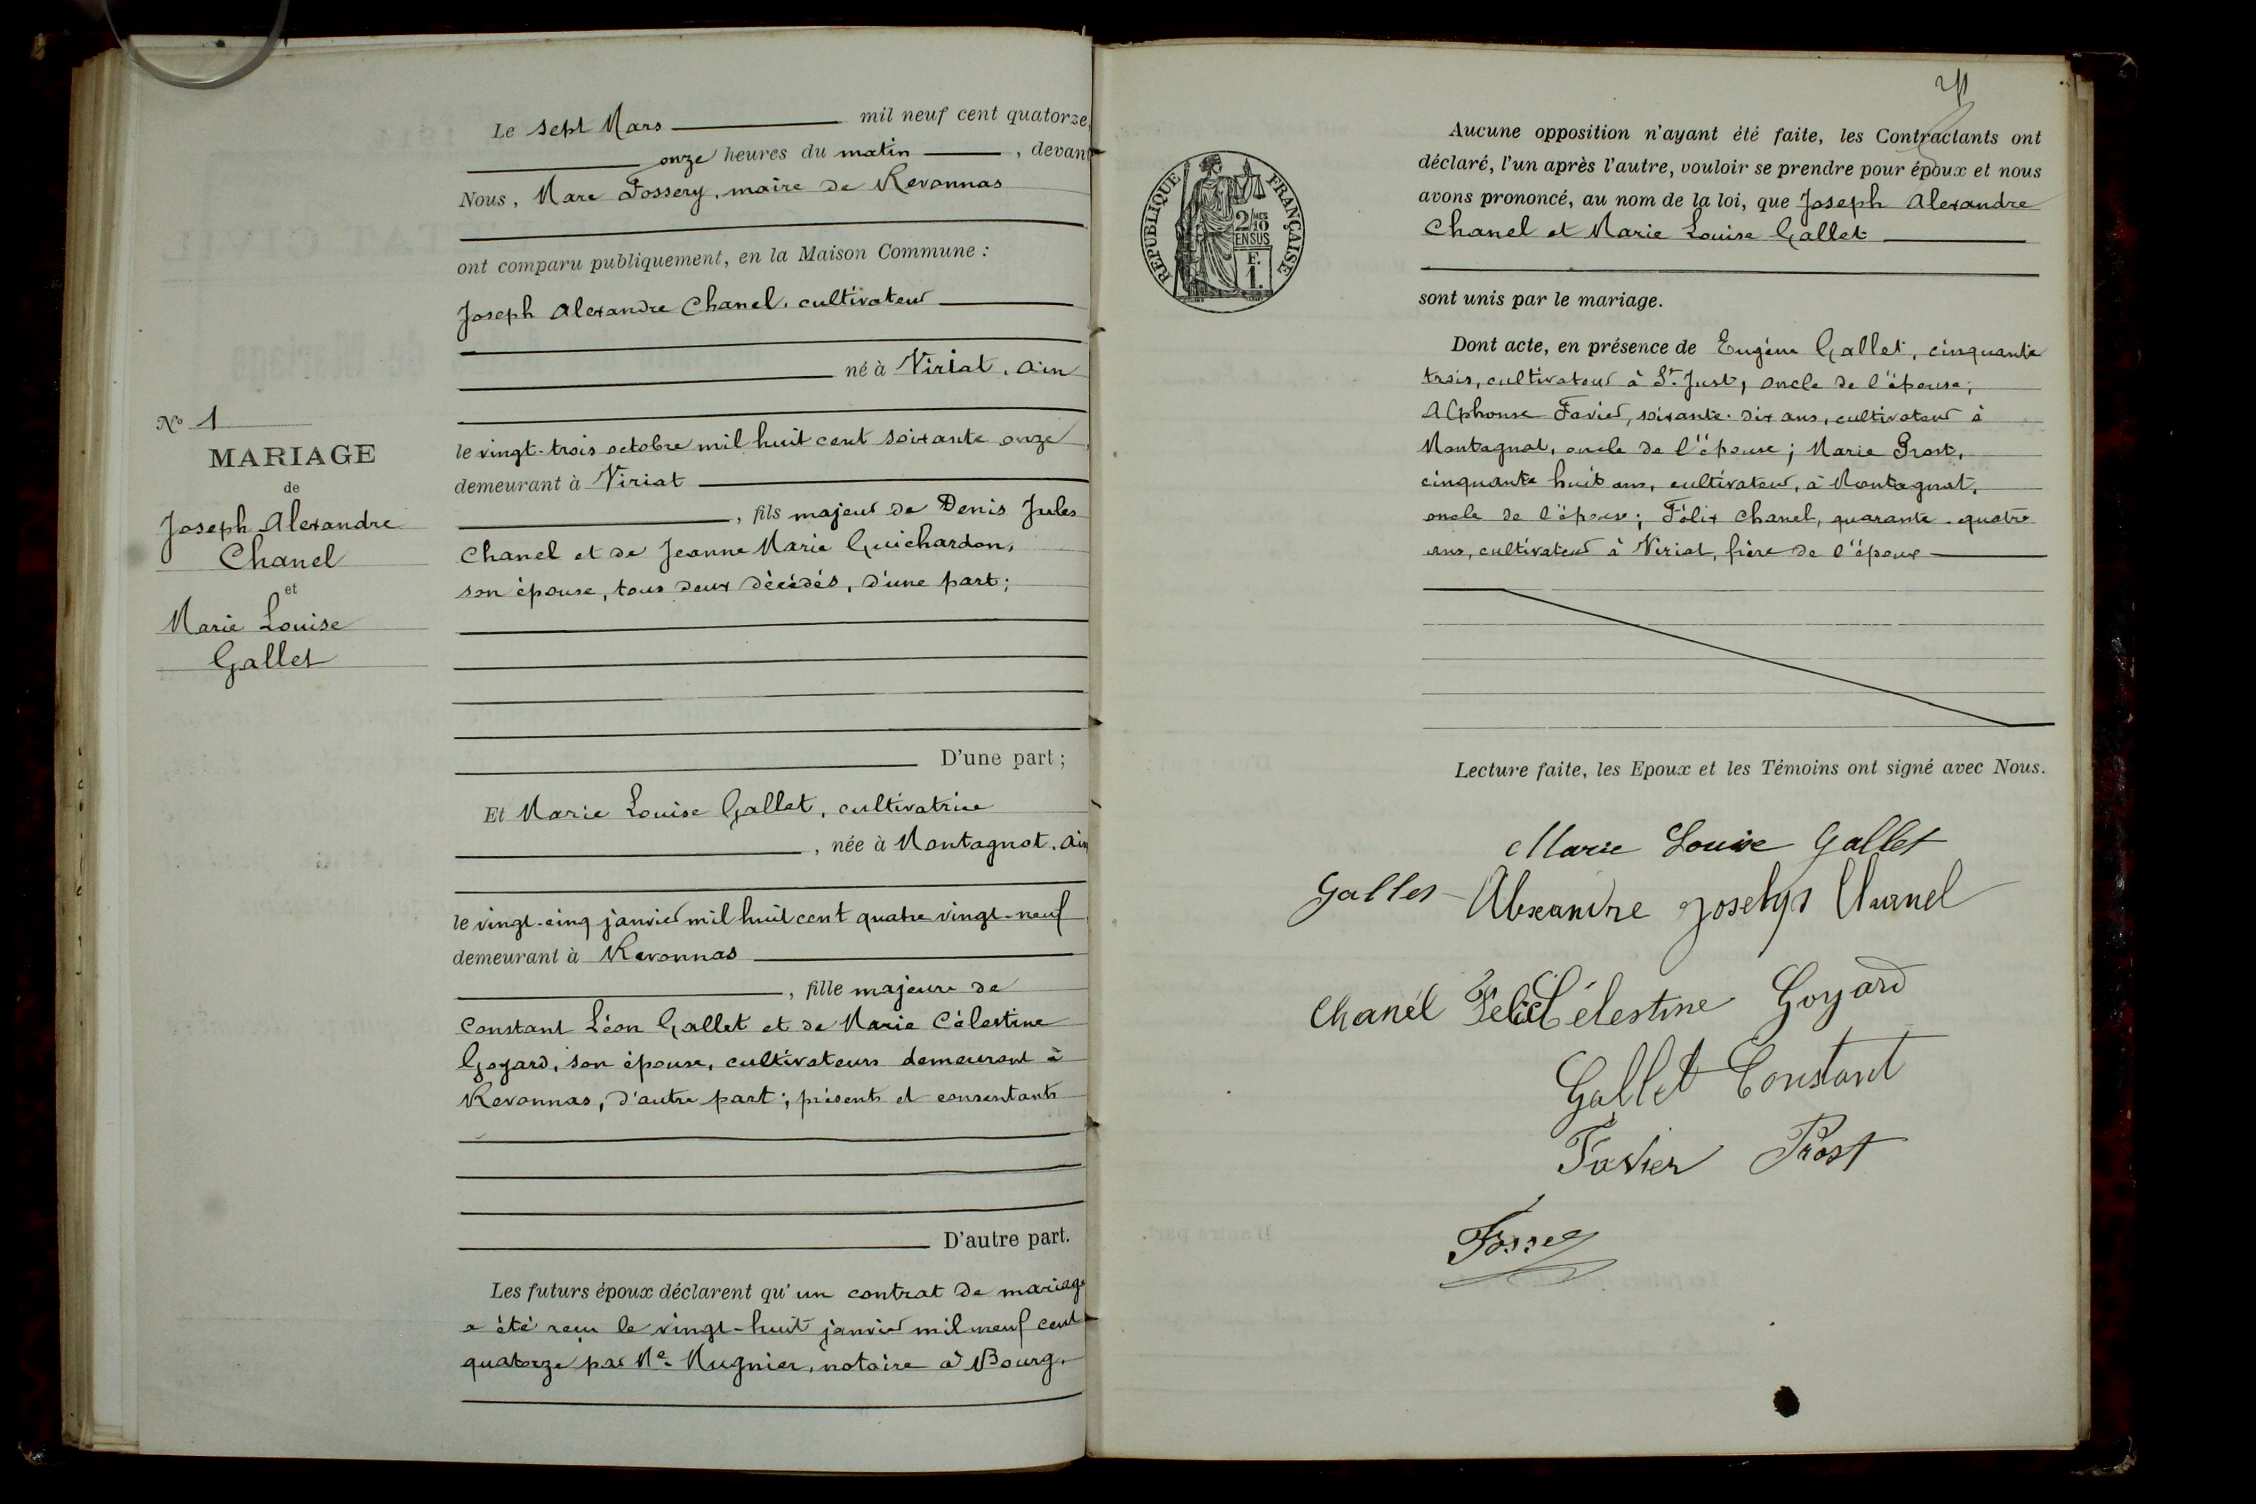 Le sept Mars mil neuf cent quatorze,
onze heures du matin, devant
Nous, Marc Fossery, maire de Revonnas
ont comparu publiquement, en la Maison Commune :
Joseph Alexandre Chanel, cultivateur
né à Viriat, Ain
le vingt-trois octobre mil huit cent soixante onze
demeurant à Viriat
, fils majeur de Denis Jules
Chanel et de Jeanne Marie Guichardon,
son épouse, tous deux décédés, d'une part;
D'une part ;
Et Marie Louise Gallet, cultivatrice
, née à Montagnat, Ain
le vingt-cinq janvier mil huit cent quatre vingt-neuf
demeurant à Revonnas
, fille majeure de
Constant Léon Gallet et de Marie Célestine
Goyard, son épouse, cultivateurs demeurant à
Revonnas, d'autre part; présents et consentants
D'autre part.
Les futurs époux déclarent qu'un contrat de mariage
a été reçu le vingt-huit janvier mil neuf cent
quatorze par Me Mugnier, notaire à Bourg.
No 1
MARIAGE
de
Joseph Alexandre
Chanel
et
Marie Louise
Gallet
RÉPUBLIQUE FRANÇAISE
2/10
EN SUS
F.
1.
Aucune opposition n'ayant été faite, les Contractants ont
déclaré, l'un après l'autre, vouloir se prendre pour époux et nous
avons prononcé, au nom de la loi, que Joseph Alexandre
Chanel et Marie Louise Gallet
sont unis par le mariage.
Dont acte, en présence de Eugène Gallet, cinquante
trois, cultivateur à St. Just, oncle de l'épouse;
Alphonse Favier, soixante-dix ans, cultivateur à
Montagnat, oncle de l'épouse; Marie Prost,
cinquante huit ans, cultivateur, à Montagnat,
oncle de l'épouse; Félix Chanel, quarante-quatre
ans, cultivateur à Viriat, frère de l'époux
Lecture faite, les Epoux et les Témoins ont signé avec Nous.
Marie Louise Gallet
Gallet Alexandre Josehps Chanel
Chanél Felix Célestine Goyard
Gallet Constant
Favier Prost